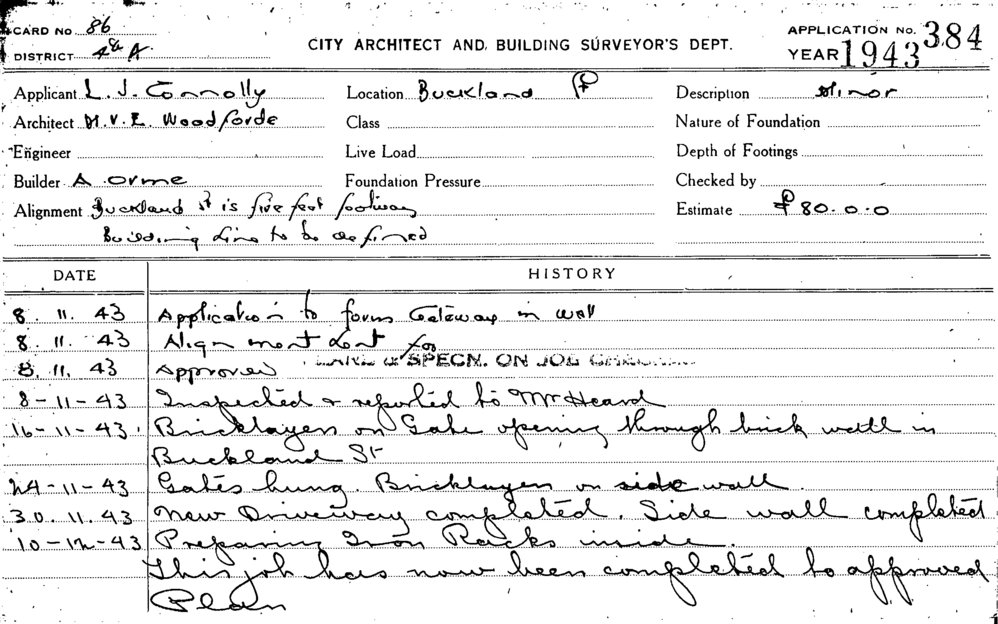 CARD No 86
DISTRICT 4a A
CITY ARCHITECT AND BUILDING SURVEYOR'S DEPT.
APPLICATION No. 384
YEAR 1943
Applicant L. J. Connolly
Location Buckland
Description Minor
Architect M.V.E. Woodforde
Class
Nature of Foundation
Engineer
Live Load
Depth of Footings
Builder A Orme
Foundation Pressure
Checked by
Alignment Buckland St is five feet footway
Estimate £80.0.0
Building Line to be defined
DATE HISTORY
8. 11. 43 Application to form Gateway in wall
8. 11. 43 Alignment
8. 11. 43 Approved & SPECN. ON JOB
8-11-43 Inspected & reported to Mr Heard
16-11-43 Bricklayers on Gate opening through brick wall in
Buckland St
24-11-43 Gates hung. Bricklayers on side wall.
30. 11. 43 New Driveway completed. Side wall completed
10-12-43 Preparing Iron Racks inside.
This job has now been completed to approved
Plan